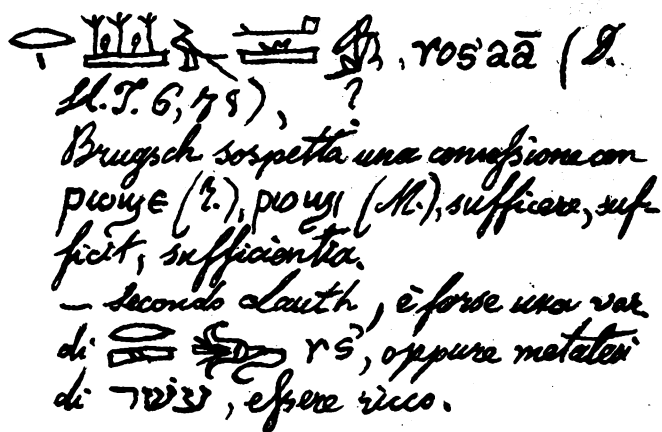 ros'aā (D.
H.T. 6, 78), ?
Brugsch sospetta una connessione con
ⲣⲱϣⲉ (T.), ⲣⲱϣⲓ (M.), sufficere, suf-
ficit, sufficientia.
— Secondo Lauth, è forse una var.
di rs', oppure metatesi
di עשיר, essere ricco.